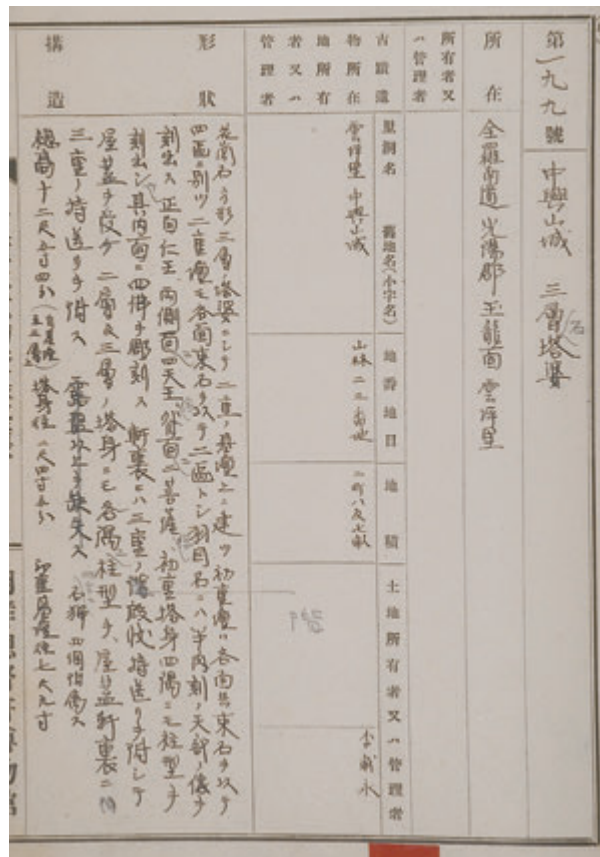 第一九九號
中興山城 三層石塔婆
所在
全羅南道光陽郡玉龍面雲坪里
所有者又ハ管理者
古蹟遺物所在地所有者又ハ管理者
里洞名 舊地名(小字名)
雲坪里 中興山城
地番地目
山林 二三番地
地積
二町八反七畝
土地所有者又ハ管理者
形狀
構造
花崗石方形三層塔婆ニシテ二重ノ基壇上ニ建ツ初重壇ハ各面共束石ヲ以テ
四區ニ別ツ二重壇モ各面束石ヲ以テ二區トシ羽目石ニハ半肉刻ノ天部ノ像ヲ
刻出ス正面仁王、兩側面四天王、背面ニ菩薩、初重塔身四隅ニモ柱型ヲ
刻出シ其內面ニ四佛ヲ彫刻ス軒裏ニハ三重ノ持送リヲ附シテ
屋蓋ヲ受ケ二層及三層ノ塔身ニモ各隅柱型ヲ、屋蓋軒裏ニ
三重ノ持送リヲ附ス 露盤以上ヲ缺失ス 石獅四個
總高十二尺五寸四分 塔身徑二尺四寸五分 初重基壇徑七尺九寸